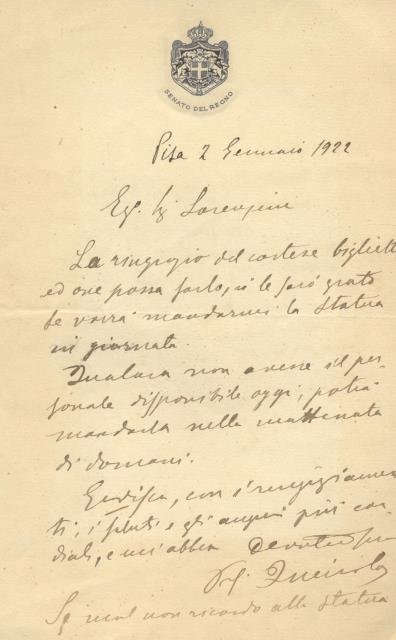 SENATO DEL REGNO
Pisa 2 Gennaio 1922
Eg. Sig Lorenzini
La ringrazio del cortese bigliett
ed ove possa farlo, io le sarò grato
se vorrà mandarmi la Statua
in giornata.
Qualora non avesse il per
sonale disponibile oggi, potrà
mandarla nella mattinata
di domani.
Gradisca, con i ringraziamen
ti, i saluti e gli auguri più cor
diali, e mi abbia
Queirolo
Se mal non ricordo alla Statua